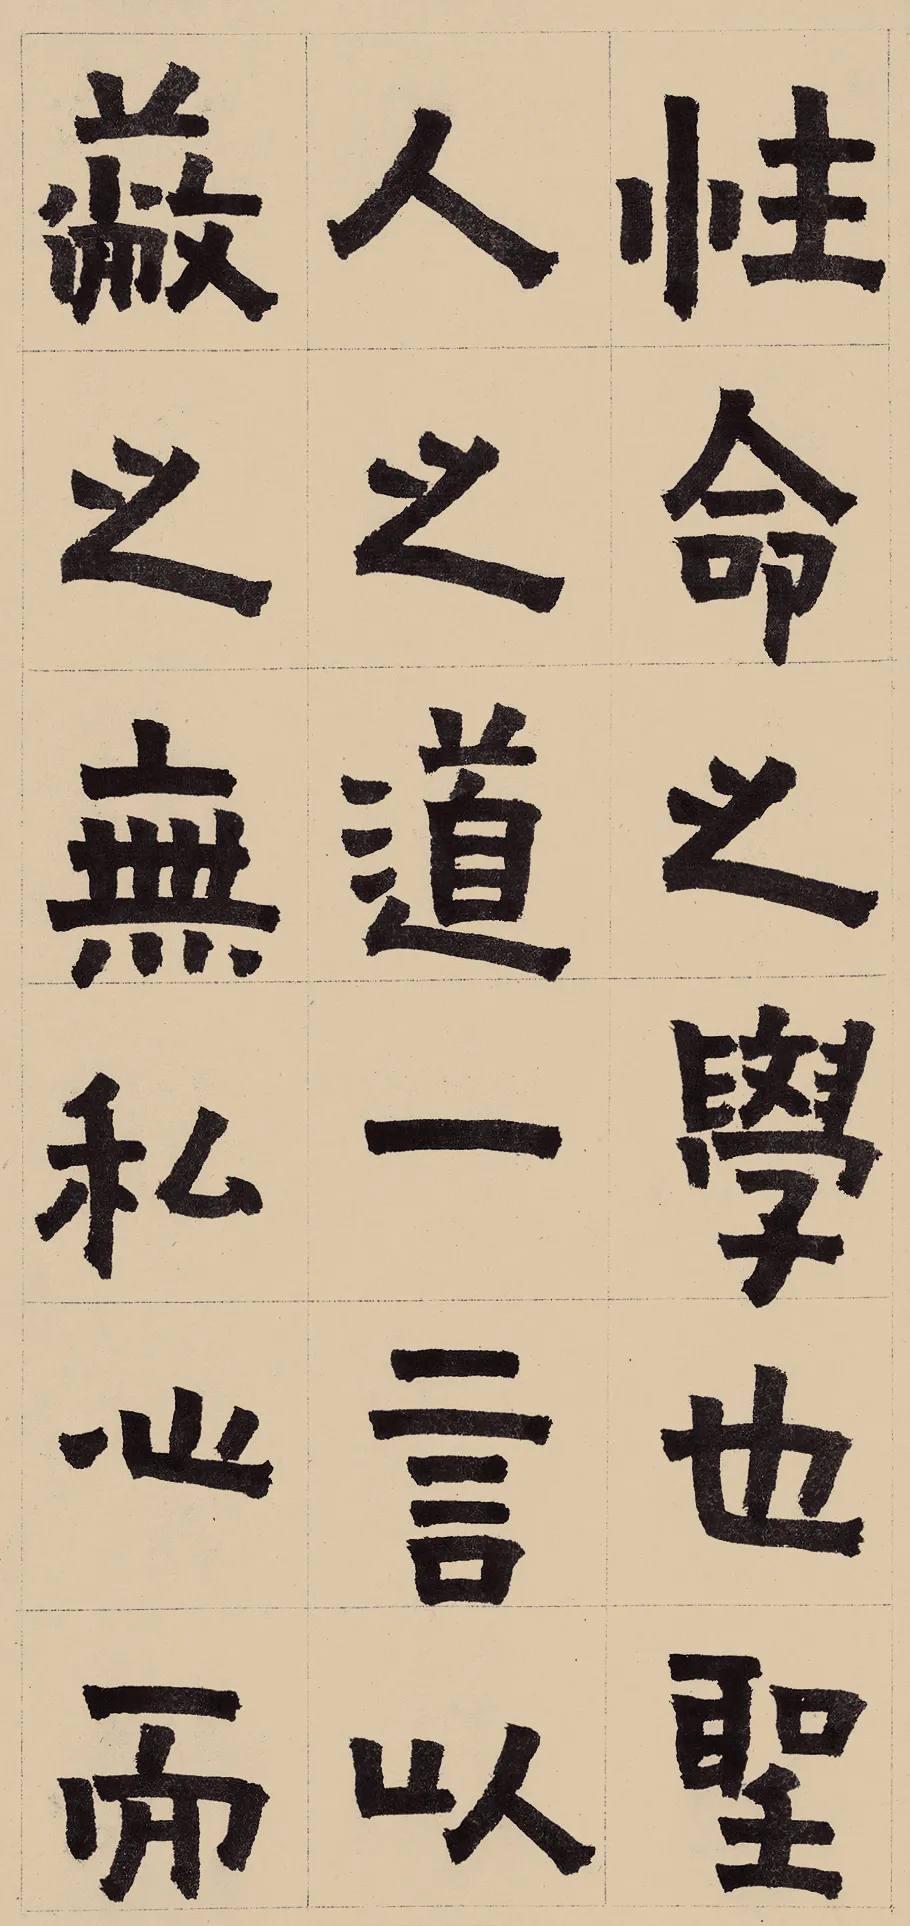 性命之學也聖
人之道一言以
蔽之無私心而